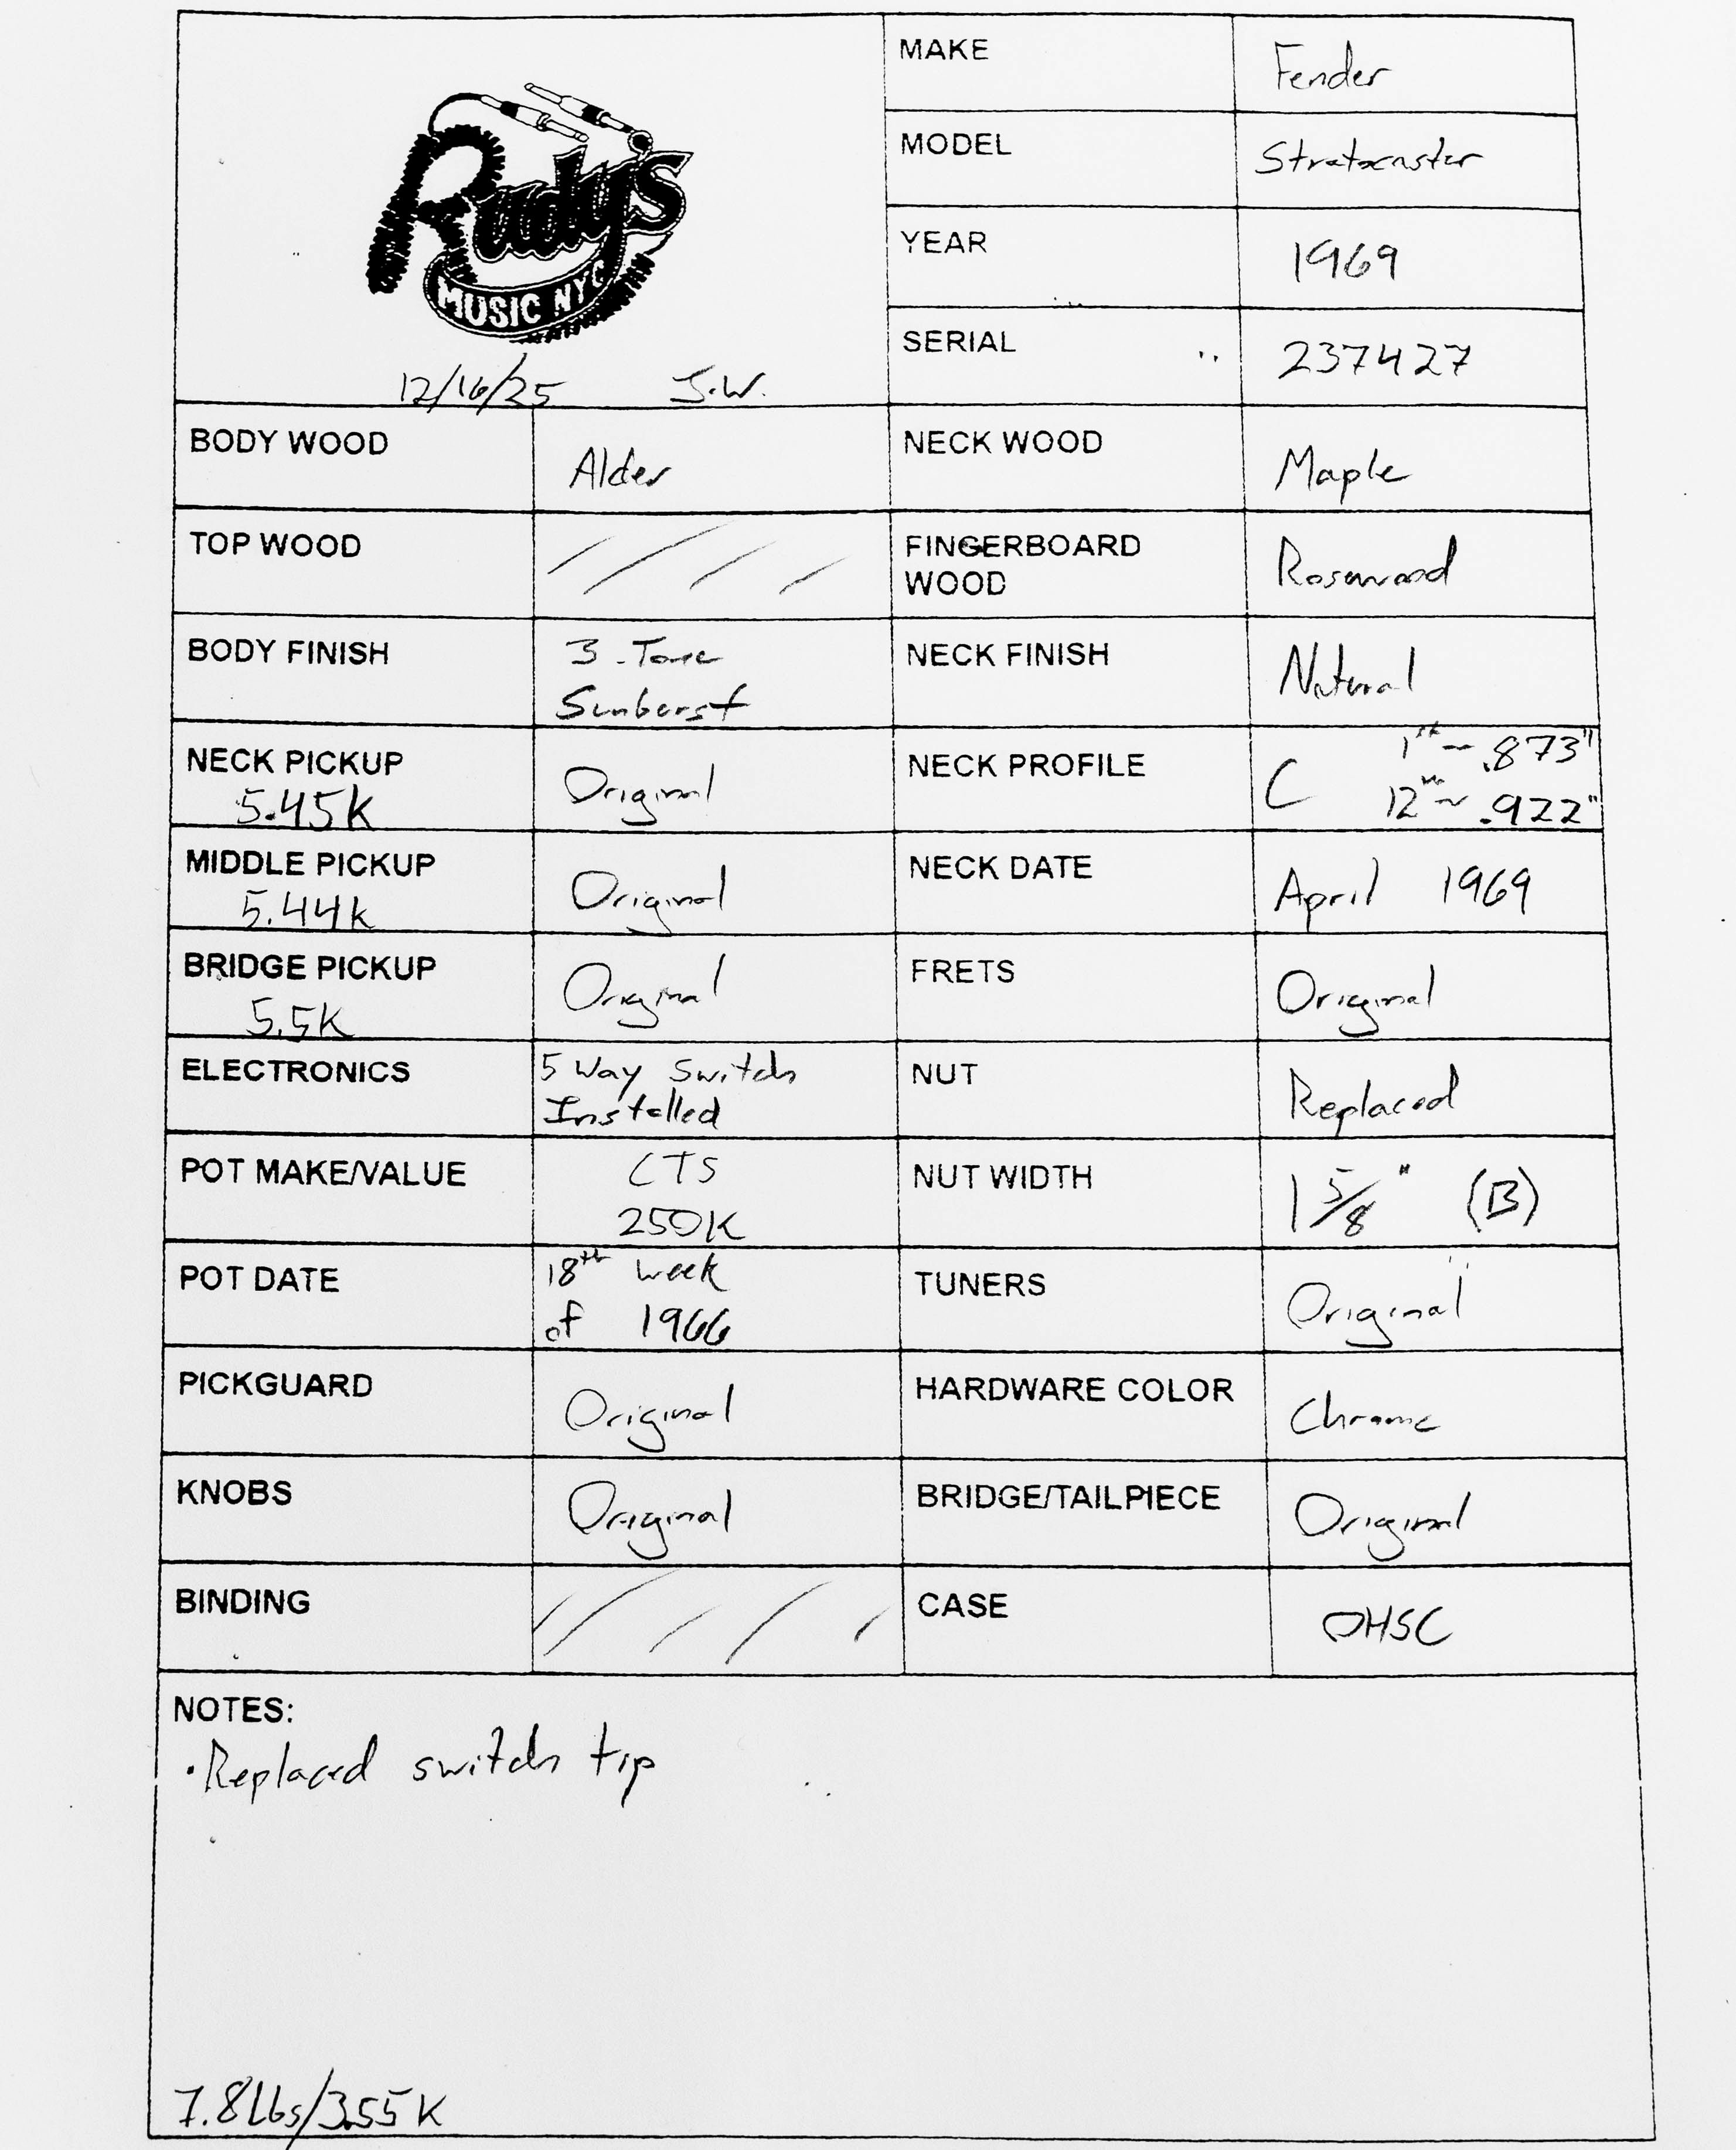 Rudy's
MUSIC NYC
12/16/25 J.W.
MAKE Fender
MODEL Stratocaster
YEAR 1969
SERIAL 237427
BODY WOOD Alder NECK WOOD Maple
TOP WOOD FINGERBOARD WOOD Rosewood
BODY FINISH 3-Tone Sunburst NECK FINISH Natural
NECK PICKUP 5.45K Original NECK PROFILE C 1st ~ .873" 12th ~ .922"
MIDDLE PICKUP 5.44K Original NECK DATE April 1969
BRIDGE PICKUP 5.5K Original FRETS Original
ELECTRONICS 5 Way Switch Installed NUT Replaced
POT MAKE/VALUE CTS 250K NUT WIDTH 1 5/8" (B)
POT DATE 18th week of 1966 TUNERS Original
PICKGUARD Original HARDWARE COLOR Chrome
KNOBS Original BRIDGE/TAILPIECE Original
BINDING CASE OHSC
NOTES:
• Replaced switch tip
7.8Lbs/3.55K